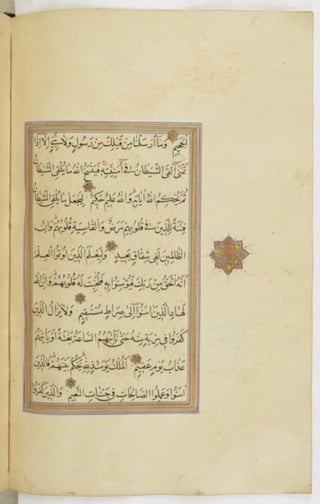 الجحيم وما أرسلنا من قبلك من رسول ولا نبي إلا إذا
تمنى ألقى الشيطان في أمنيته فينسخ الله ما يلقي الشيطان
ثم يحكم الله آياته والله عليم حكيم ليجعل ما يلقي الشيطان
فتنة للذين في قلوبهم مرض والقاسية قلوبهم وإن
الظالمين لفي شقاق بعيد وليعلم الذين أوتوا العلم
أنه الحق من ربك فيؤمنوا به فتخبت له قلوبهم وإن الله
لهاد الذين آمنوا إلى صراط مستقيم ولا يزال الذين
كفروا في مرية منه حتى تأتيهم الساعة بغتة أو يأتيهم
عذاب يوم عقيم الملك يومئذ لله يحكم بينهم فالذين
آمنوا وعملوا الصالحات في جنات النعيم والذين كفروا